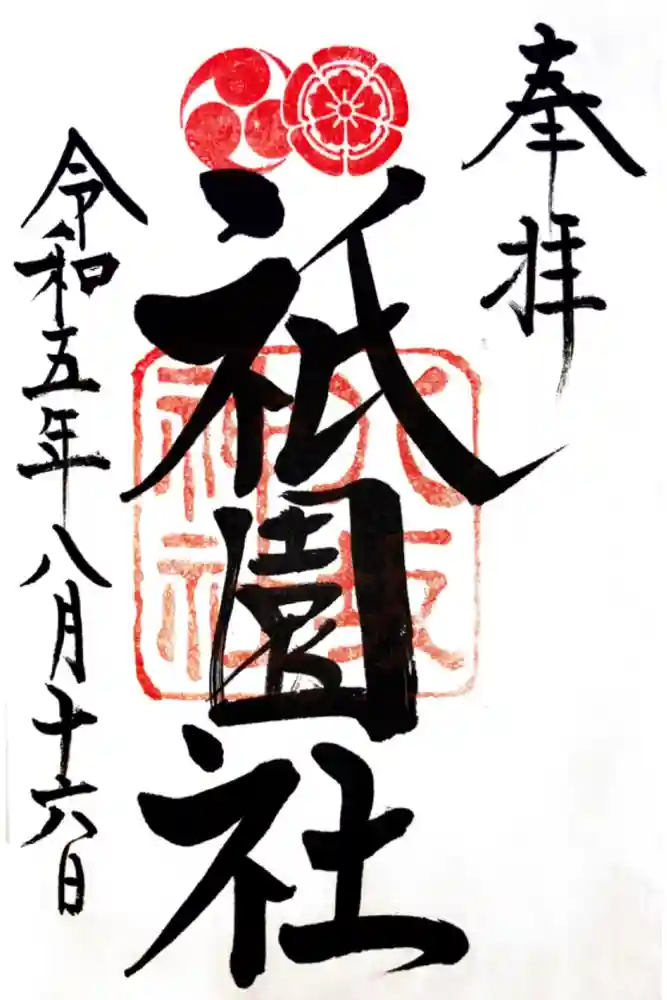 奉拝
八坂
神社
祇園社
令和五年八月十六日